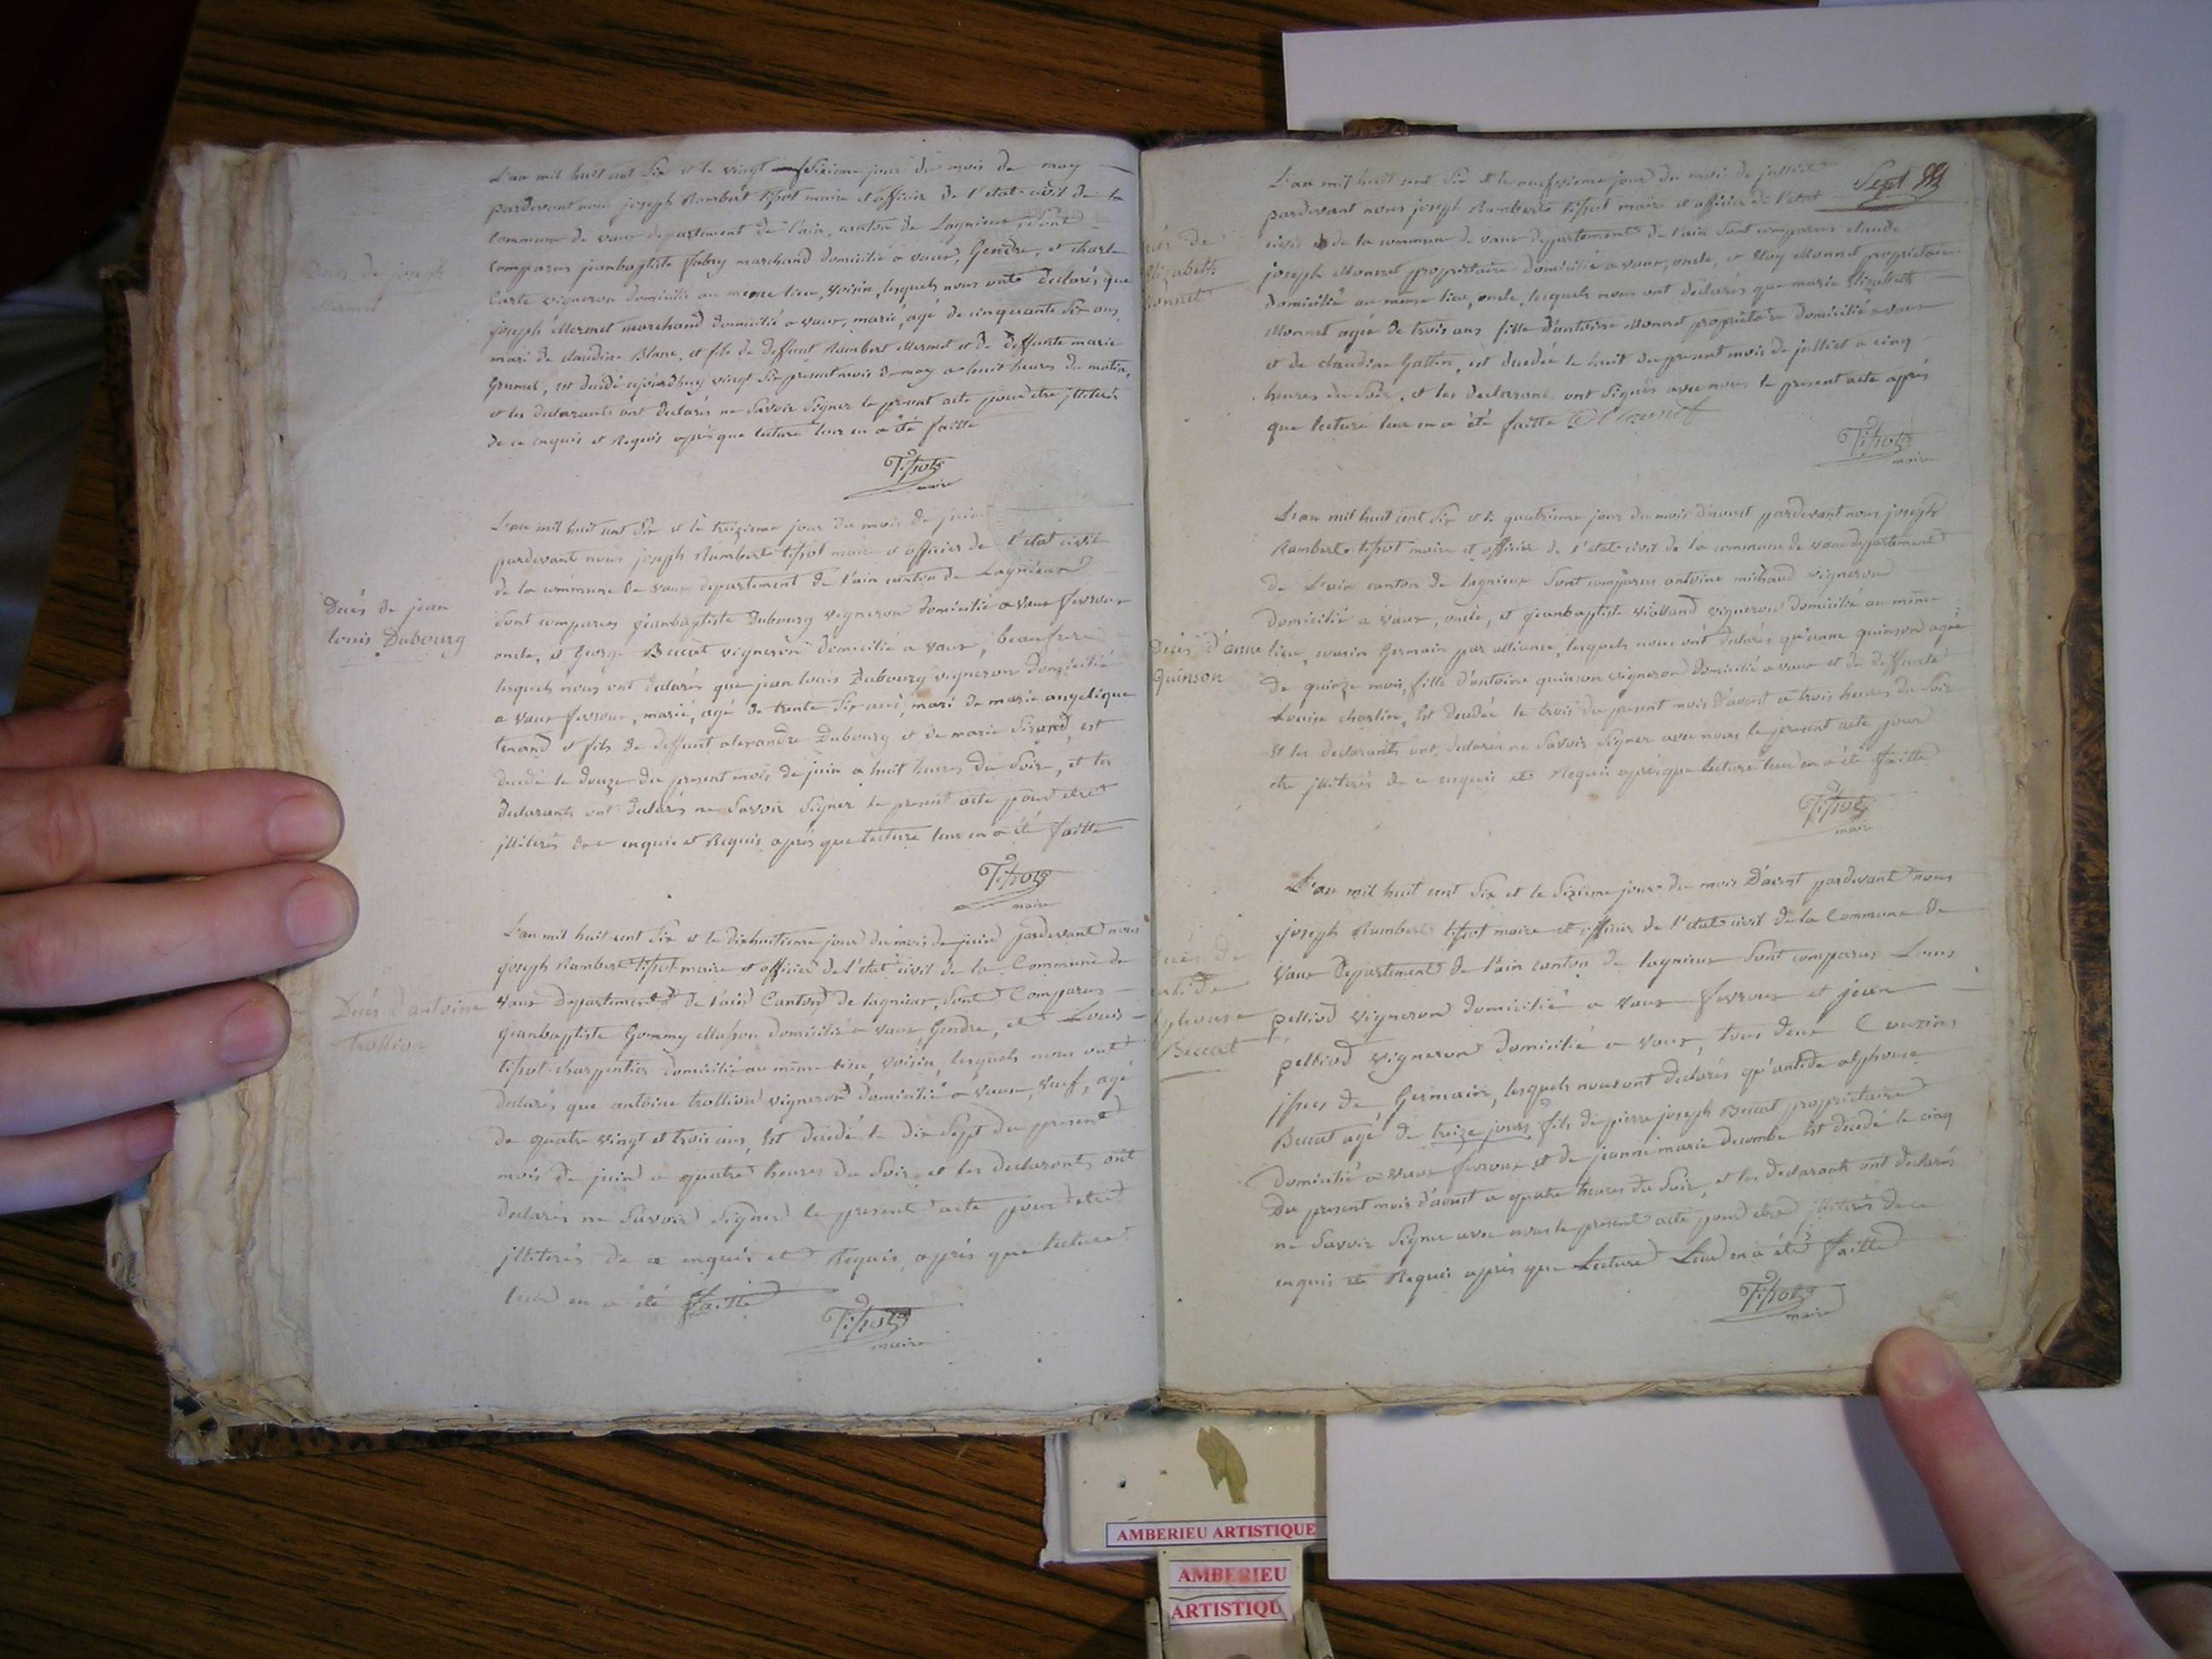 L'an mil huit cent six et le vingt sixieme jour du mois de may
pardevant nous joseph Rambert tissot maire et officier de l'etat civil de la
commune de vaux departement de l'ain, canton de Lagnieux, sont
comparus jeanbaptiste fabry marchand domicilié a vaux, Gendre, et charle
Carte vigneron domicilié au meme lieu, voisin, lesquels nous ont declarés que
joseph Mermet marchand domicilié a vaux, marié, agé de cinquante six ans,
mari de claudine Blanc, et fils de deffunt Rambert Mermet et de deffunte marie
est decedé aujourdhuy vingt six present mois de may a huit heures du matin,
et les declarants ont declarés ne savoir signer le present acte pour etre jlliterés
de ce enquis et Requis après que lecture leur en a été faitte
Tissot
maire
Decès de joseph
Mermet
L'an mil huit cent six et le treizieme jour du mois de juin
pardevant nous joseph Rambert tissot maire et officier de l'etat civil
de la commune de vaux departement de l'ain canton de Lagnieux
sont comparus jeanbaptiste Dubourg vigneron domicilié a vaux fevroux
oncle, et George Beccat vigneron domicilié a vaux, beaufrere
lesquels nous ont declarés que jean louis Dubourg vigneron domicilié
a vaux fevroux, marié, agé de trente six ans, mari de marie angelique
tenand et fils de deffunt alexandre Dubourg et de marie Sirand, est
decedé le douze du present mois de juin a huit heures du soir, et les
declarants ont declarés ne savoir signer le present acte pour etre
jlliterés de ce enquis et Requis après que lecture leur en a été faitte
Tissot
maire
Decès de jean
louis Dubourg
L'an mil huit cent six et le dixhuitieme jour du mois de juin pardevant nous
joseph Rambert tissot maire et officier de l'etat civil de la Commune de
vaux departement de l'ain Canton de lagnieux, sont Comparus
jeanbaptiste Gommy Masson domicilié a vaux Gendre, et Louis
tissot charpentier domicilié au même lieu, voisin, lesquels nous ont
declarés que antoine trollion vigneron domicilié a vaux, veuf, agé
de quatre vingt et trois ans, Est decedé le dix sept du present
mois de juin a quatre heures du soir et les declarants ont
declarés ne savoir signer le present acte pour etre
jlliterés de ce enquis et Requis après que lecture
leur en a été faitte
Tissot
maire
Decès d'antoine
trollion
Sept
L'an mil huit cent six et le neufvieme jour du mois de julliet
pardevant nous joseph Rambert tissot maire et officier de l'etat
civil de la commune de vaux departement de l'ain sont comparus claude
joseph Monnet propriétaire domicilié a vaux, oncle, et Monnet propriétaire
domicilié au même lieu, oncle, lesquels nous ont declarés que marie Elizabeth
Monnet agée de trois ans fille d'antoine Monnet propriétaire domicilié a vaux
et de claudine Gallin, est decedée le huit du present mois de julliet a cinq
heures du soir, et les declarants ont signés avec nous le present acte après
que lecture leur en a été faitte
Tissot
maire
de
Elizabeth
Monnet
L'an mil huit cent six et le quatrieme jour du mois d'aoust pardevant nous joseph
Rambert tissot maire et officier de l'etat civil de la commune de vaux departement
de L'ain canton de lagnieux sont comparus antoine michaud vigneron
domicilié a vaux, oncle, et jeanbaptiste violland vigneron domicilié au même
lieu, cousin Germain par alliance, lesquels nous ont declarés qu'anne quinson agée
de quinze mois, fille d'antoine quinson vigneron domicilié a vaux et de deffunte
Louise charlin, Est decedée le trois du present mois d'aoust a trois heures du soir
Et les declarants ont declarés ne savoir signer avec nous le present acte pour
etre jlliterés de ce enquis et Requis après que lecture leur en a été faitte
Tissot
maire
Decès d'anne
Quinson
L'an mil huit cent six et le sixieme jour du mois D'aoust pardevant nous
joseph Rambert tissot maire et officier de l'etat civil de la Commune de
vaux Departement de l'ain canton de lagnieux sont comparus Louis
pelliod vigneron domicilié a vaux fevroux et jean
pelliod vigneron domicilié a vaux, tous deux Couzins
jssus de Germain, lesquels nous ont declarés qu'antide alphonse
Beccat agé de treize jours fils de pierre joseph Beccat propriétaire
domicilié a vaux fevroux et de jeanne marie decombe Est decedé le cinq
Du present mois d'aoust a quatre heures du soir, et les declarants ont declarés
ne savoir signer avec nous le present acte pour etre jlliterés de ce
enquis et Requis après que Lecture Leur en a été faitte
Tissot
maire
de
Beccat
AMBERIEU ARTISTIQUE
AMBERIEU
ARTISTIQU